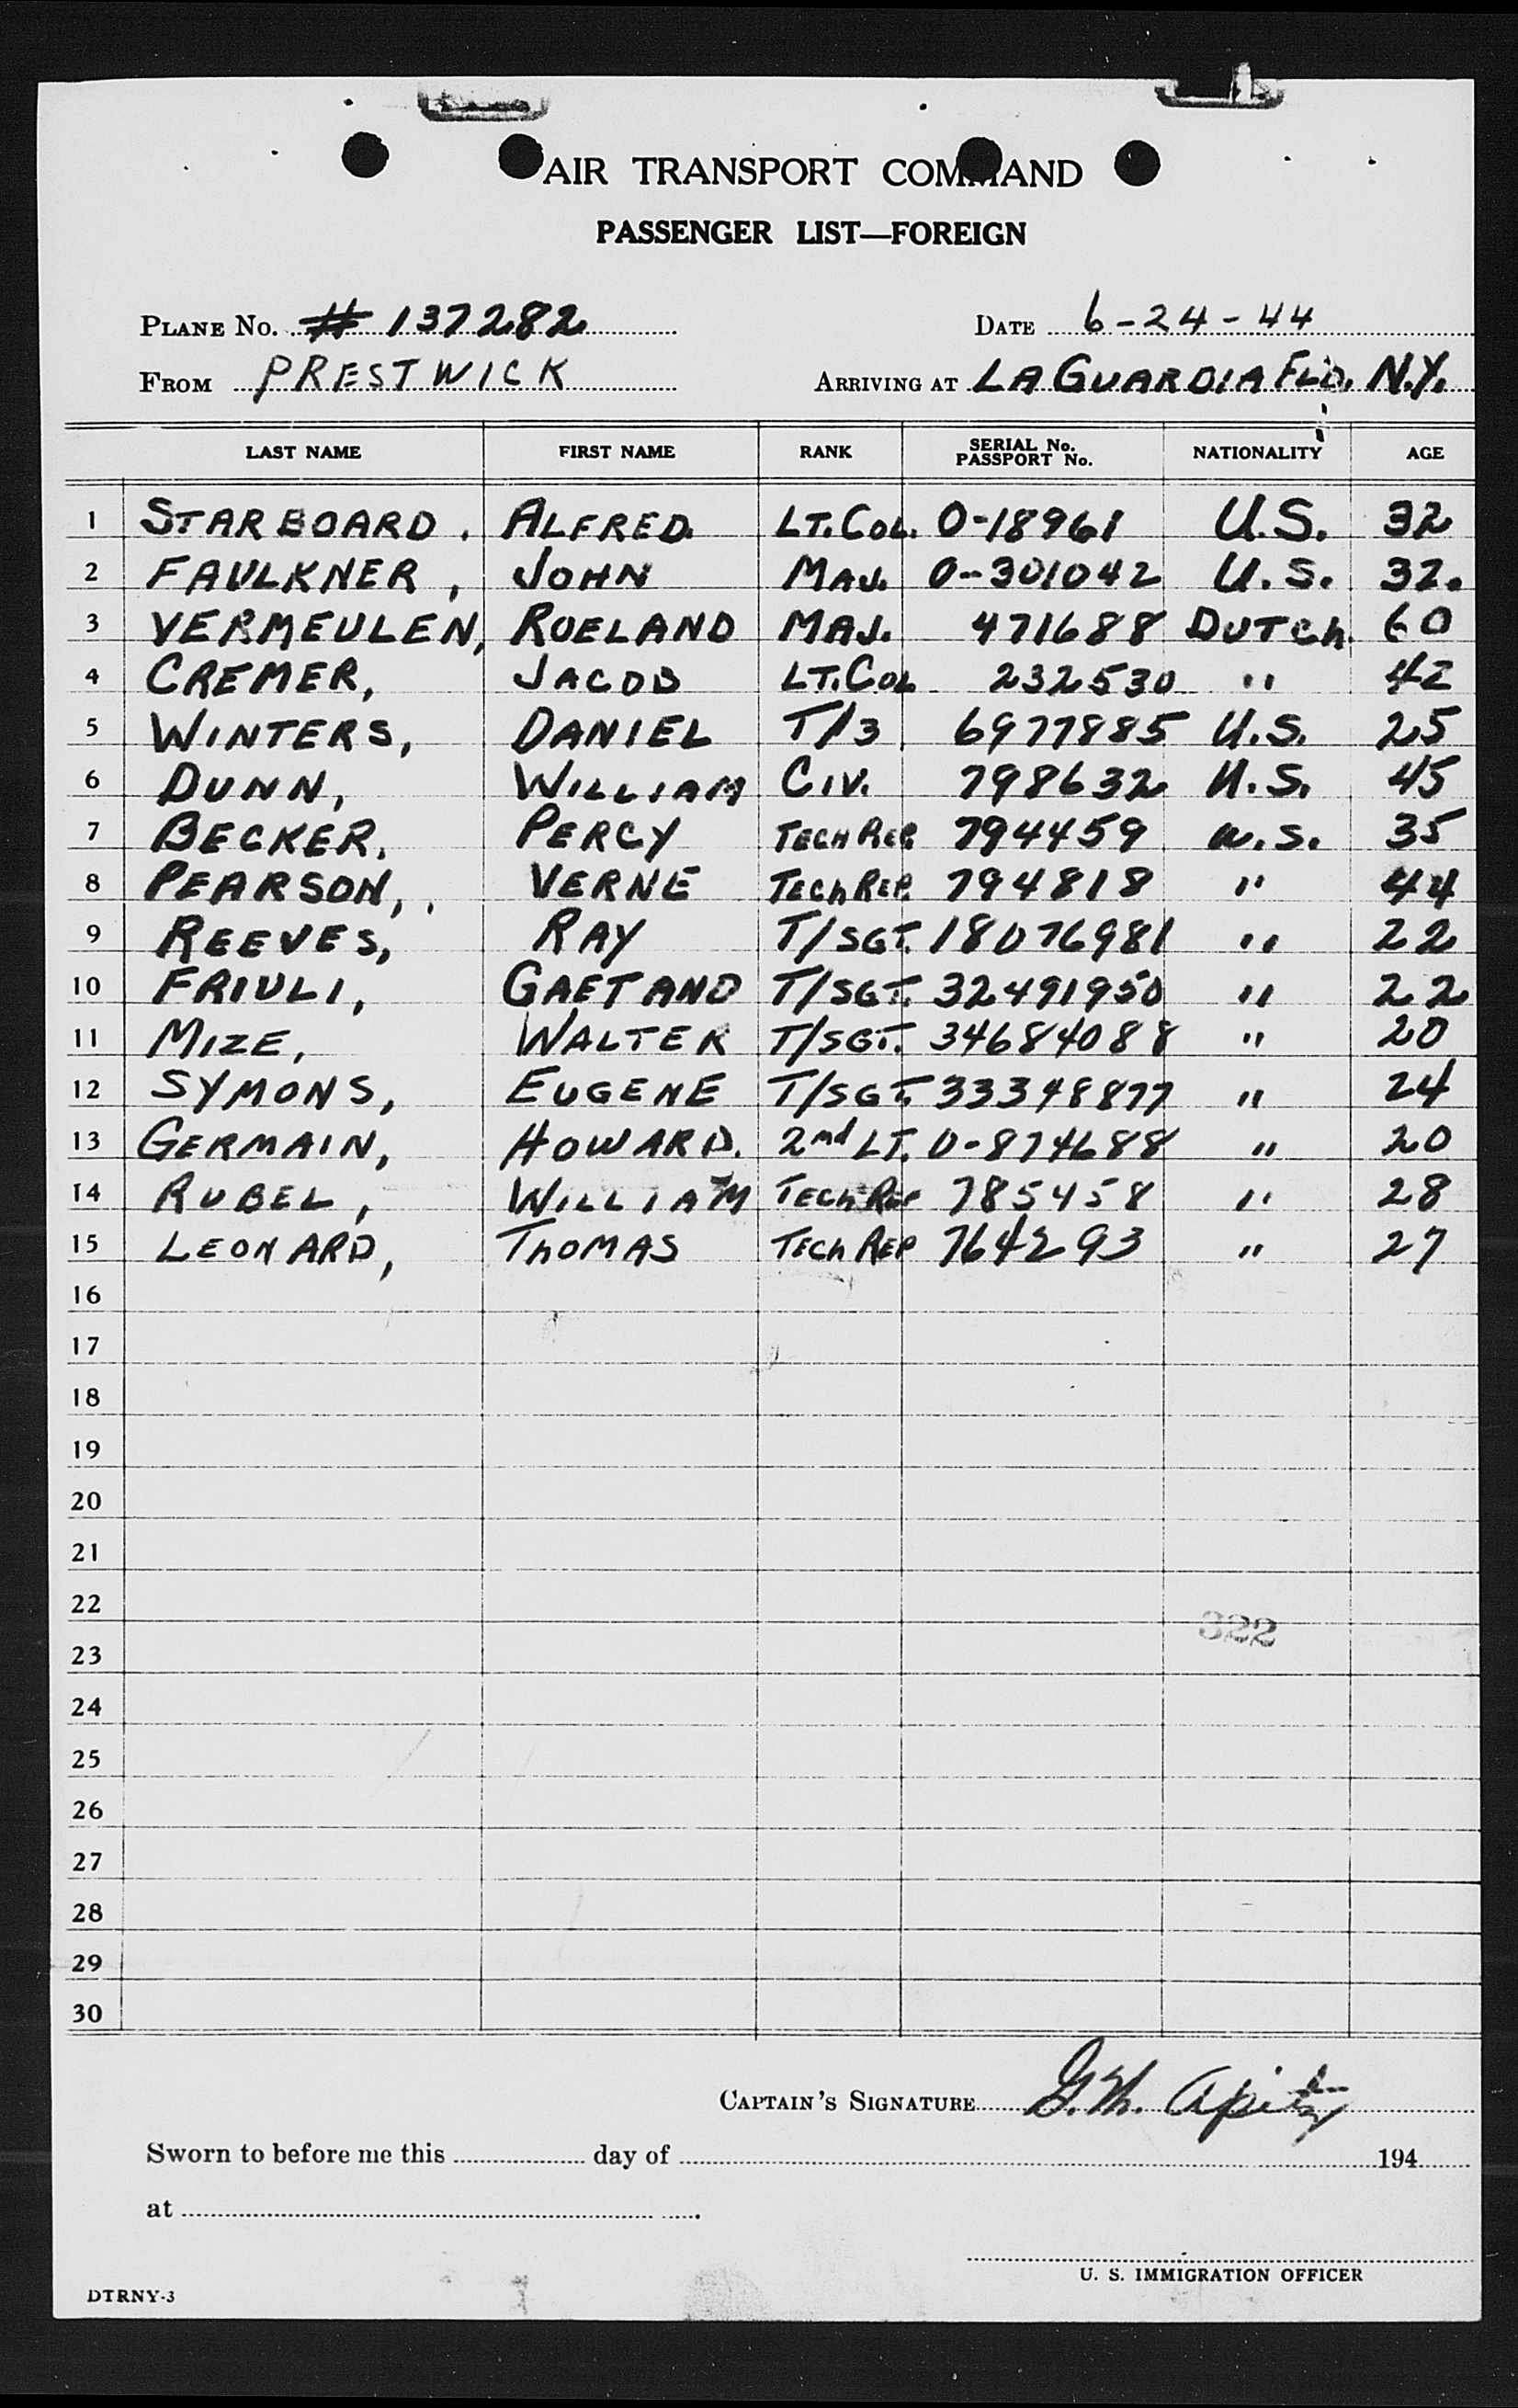 AIR TRANSPORT COMMAND
PASSENGER LIST—FOREIGN
PLANE No. # 137282 DATE 6-24-44
FROM PRESTWICK ARRIVING AT LA GUARDIA FLD. N.Y.
LAST NAME FIRST NAME RANK SERIAL No. PASSPORT No. NATIONALITY AGE
1 STARBOARD, ALFRED. LT. COL. O-18961 U.S. 32
2 FAULKNER, JOHN MAJ. O-301042 U.S. 32.
3 VERMEULEN, ROELAND MAJ. 471688 DUTCH. 60
4 CREMER, JACOB LT. COL 232530 " 42
5 WINTERS, DANIEL T/3 6977885 U.S. 25
6 DUNN, WILLIAM CIV. 798632 U.S. 45
7 BECKER, PERCY TECH REP. 794459 U.S. 35
8 PEARSON, VERNE TECH REP. 794818 " 44
9 REEVES, RAY T/SGT. 18076981 " 22
10 FRIULI, GAETANO T/SGT. 32491950 " 22
11 MIZE, WALTER T/SGT. 34684088 " 20
12 SYMONS, EUGENE T/SGT. 33348877 " 24
13 GERMAIN, HOWARD. 2nd LT. O-874688 " 20
14 RUBEL, WILLIAM TECH REP 785458 " 28
15 LEONARD, THOMAS TECH REP 764293 " 27
16
17
18
19
20
21
22
322
23
24
25
26
27
28
29
30
CAPTAIN'S SIGNATURE G.M. Apitz
Sworn to before me this day of 194
at
U. S. IMMIGRATION OFFICER
DTRNY-3